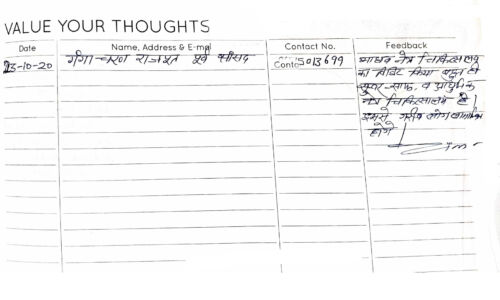 VALUE YOUR THOUGHTS
Date Name, Address & E-mail Contact No. Feedback
13-10-20 गंगा चरण राजपूत पूर्व सांसद 5013699 नेत्र चिकित्सालय
Conta
का विजिट किया बहुत ही
सुन्दर साफ, व आधुनिक
नेत्र चिकित्सालय है।
इससे गरीब लोग लाभान्वित
होंगे